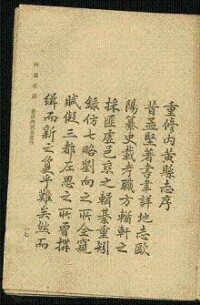 重修內黃縣志序
昔孟堅著書韋詳地志歐
陽纂史載考職方輶軒之
採匪虛邑乘之輯綦重矧
錄仿七略劉向之所全窺
賦假三都左思之所曾撰
緝而新之夐乎難矣然而
內黃縣志